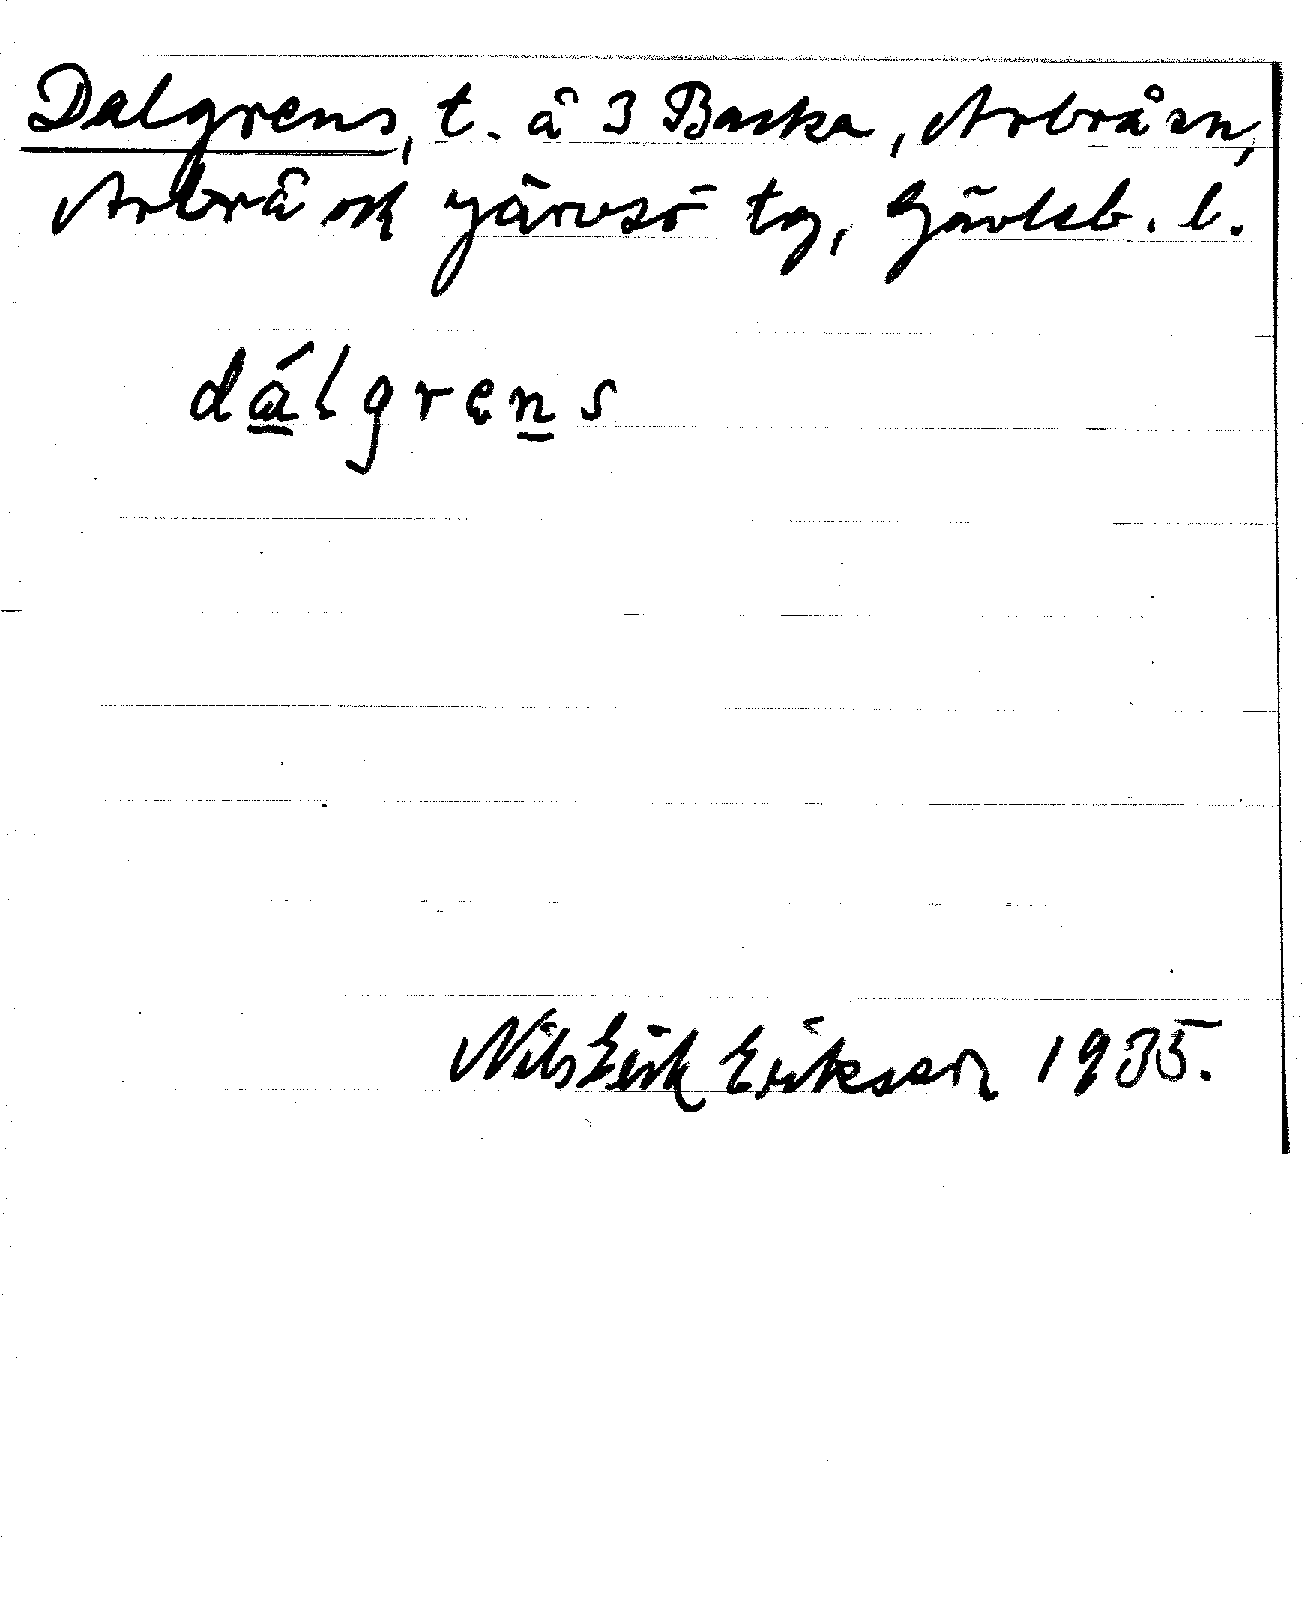 Dalgrens, t. å 3 Baska, Arbrå sn,
Arbrå och Järvsö tg, Gävleb. l.
dálgrens
Nils Erik Eriksson 1935.